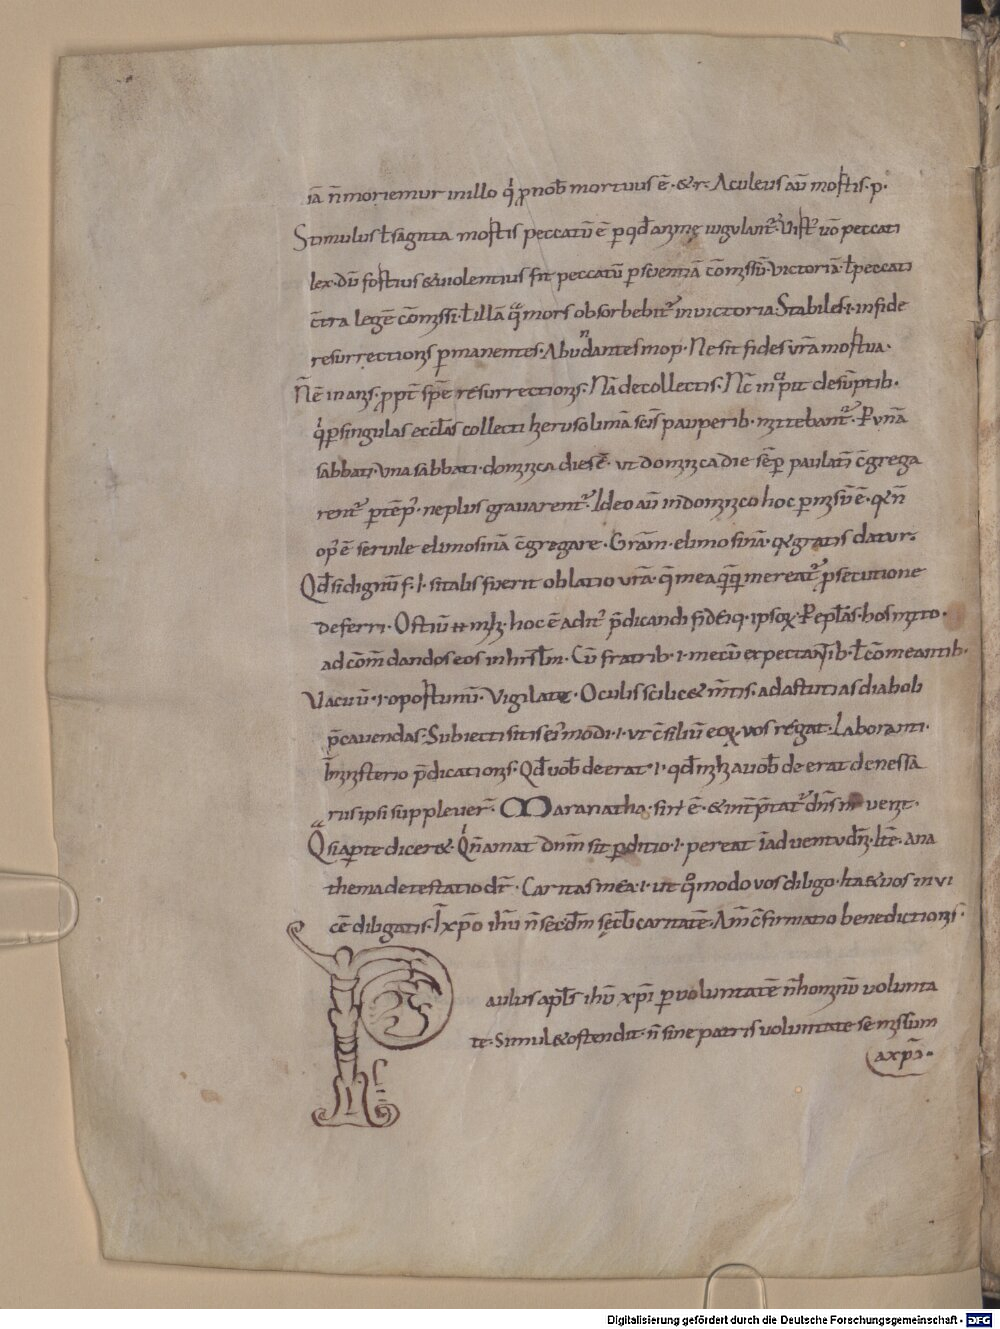 iā n̄ moriemur in illo q̇ ꝓ nob̄ mortuus ē · &r · Aculeus aū mortis · p ·
Stimulus ł sagitta mortis peccatū ē ꝑ qd̄ animę iugulant᷑ · Virt᷑ uō peccati
lex · dū fortius & uiolentius fit peccatū ꝑ scientiā cōmissū · victoriā · ł peccati
c̄tra legē cōmissi · ł illā q̄ mors obsorbebit᷑ in victoria · Stabiles · i · in fide
resurrectionis ꝑmanentes · Abundantes in op · Ne sit fides vr̄a mortua ·
N̄ ē inanis · ꝓpt̄ spē resurrectionis · Nā de collectis · desūptib ·
q̇ ꝑ singulas eccl̄as collecti hierusolimā sc̄is pauperib · mittebant᷑ · P unā
sabbati · una sabbati · dominica dies ē · ut dominica die sēꝑ paulatī c̄grega
rent᷑ · ne plus gravarent᷑ · Ideo aū in dominico hoc ꝑmisū ē · qn̄
op᷑ ē servile elimosinā c̄gregare · Gr̄am · elimosinā · q gratis datur ·
Qd̄ si dignū f · i · si talis fuerit oblatio vr̄a · mereat᷑ ꝓsecutione
deferri · Ostiū · hoc ē adit᷑ p̄dicandi fidēiq · ipsoꝝ · Repl̄as · hos mitto ·
ad cōmdandos eos in hr̄sl̄m · Cū fratrib · i · mecū expectantib · ł cōmeantib ·
Vacuū · i · oportunū · Vigilate · Oculis scilic& m̄tis · ad astutias diaboli
p̄cavendas · Subiecti sitis ei᷑modi · i · ut c̄siliū eoꝝ · vos regat · Laboranti ·
In ministerio p̄dicationis · Qd̄ uob̄ deerat · i · qd̄ a uob̄ deerat de nessā
rus ipsi supplever̄ · Maranatha · ē · & int̄p̄tat᷑ dn̄s nr̄ venit ·
Q si aꝑte dicer& · Q n̄ amat dn̄m sit ꝑditio · i · pereat ī adventu dn̄i · ana
thema detestatio dr̄ · Caritas mea · i · ut quōmodo vos diligo · ita & uos invi
cē diligatis · In xp̄o ihū n̄ secdm̄ sęcl̄i caritatē · Am̄ c̄firmatio benedictionis ·
Paulus apl̄s ihū xp̄i ꝑ voluntatē n̄ hominū volunta
te · Simul & ostendit · n̄ sine patris voluntate se missum
a xp̄o ·
Digitalisierung gefördert durch die Deutsche Forschungsgemeinschaft - DFG